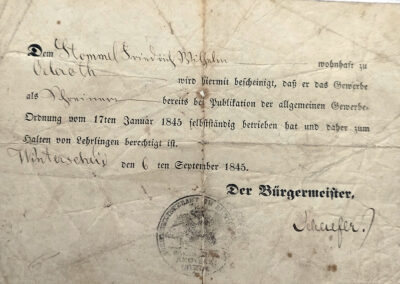 Dem Stommel Friedrich Wilhelm wohnhaft zu
Oelroth wird hiermit bescheinigt, daß er das Gewerbe
als Schreiner bereits bei Publikation der allgemeinen Gewerbe-
Ordnung vom 17ten Januar 1845 selbstständig betrieben hat und daher zum
Halten von Lehrlingen berechtigt ist.
Winterscheid den 6 ten September 1845.
Der Bürgermeister.
Schaefer.